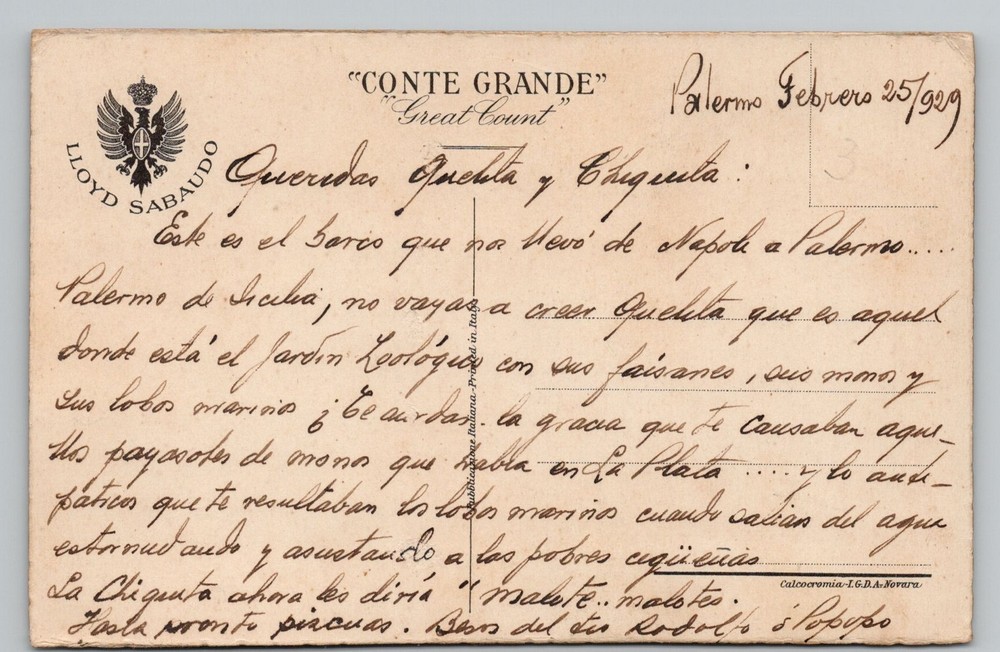 "CONTE GRANDE"
"Great Count"
LLOYD SABAUDO
Palermo Febrero 25/929
3
Queridas Quelita y Chiquita:
Este es el barco que nos llevó de Napoli a Palermo.....
Palermo de Sicilia, no vayas a creer Quelita que es aquel
donde está el Jardín Zoológico con sus faisanes, sus monos y
sus lobos marinos ¿Te acordas la gracia que te causaban aque-
llos payasotes de monos que había en La Plata .... y lo anti-
páticos que te resultaban los lobos marinos cuando salian del agua
estornudando y asustando a las pobres cigüeñas
La Chiquita ahora les diría " malote.. malotes.
Hasta pronto pizcuas. Besos del tio Rodolfo ó Popopo
Pubblicazione Italiana-Printed in Italy
Calcocromia-I.G.D.A.-Novara